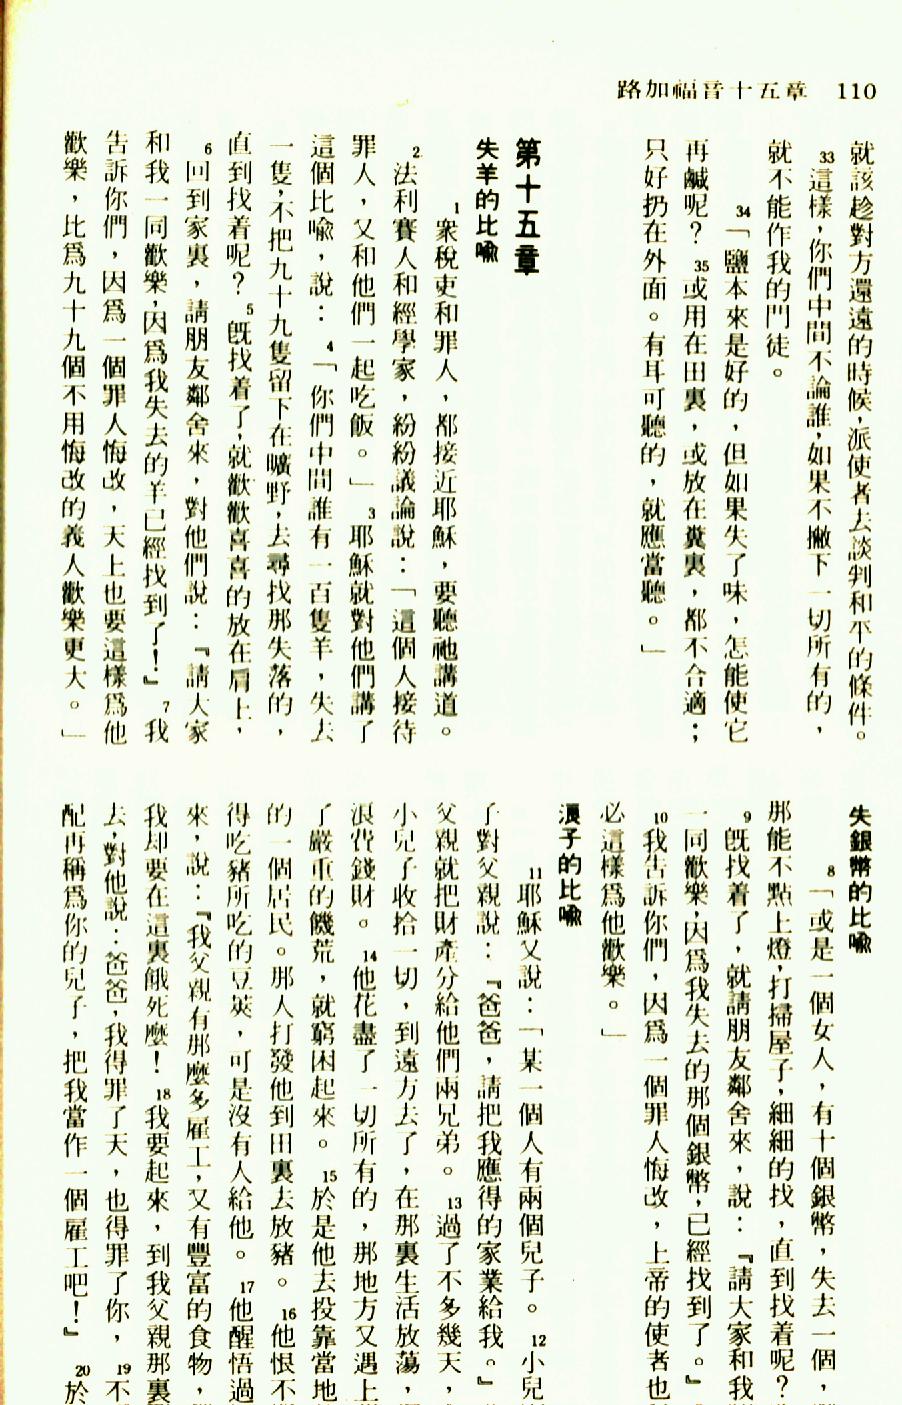 路加福音十五章 110
就該趁對方還遠的時候，派使者去談判和平的條件。
33這樣，你們中間不論誰，如果不撇下一切所有的，
就不能作我的門徒。
34「鹽本來是好的，但如果失了味，怎能使它
再鹹呢？35或用在田裏，或放在糞裏，都不合適；
只好扔在外面。有耳可聽的，就應當聽。」
第十五章
失羊的比喩
1衆稅吏和罪人，都接近耶穌，要聽祂講道。
2法利賽人和經學家，紛紛議論說：「這個人接待
罪人，又和他們一起吃飯。」3耶穌就對他們講了
這個比喩，說：4「你們中間誰有一百隻羊，失去
一隻，不把九十九隻留下在曠野，去尋找那失落的，
直到找着呢？5旣找着了，就歡歡喜喜的放在肩上，
6回到家裏，請朋友鄰舍來，對他們說：『請大家
和我一同歡樂，因爲我失去的羊已經找到了！』7我
告訴你們，因爲一個罪人悔改，天上也要這樣爲他
歡樂，比爲九十九個不用悔改的義人歡樂更大。」
失銀幣的比喩
8「或是一個女人，有十個銀幣，失去一個，
那能不點上燈，打掃屋子，細細的找，直到找着呢？
9旣找着了，就請朋友鄰舍來，說：『請大家和我
一同歡樂，因爲我失去的那個銀幣，已經找到了。』
10我告訴你們，因爲一個罪人悔改，上帝的使者也
必這樣爲他歡樂。」
浪子的比喩
11耶穌又說：「某一個人有兩個兒子。12小兒
子對父親說：『爸爸，請把我應得的家業給我。』
父親就把財產分給他們兩兄弟。13過了不多幾天，
小兒子收拾一切，到遠方去了，在那裏生活放蕩，
浪費錢財。14他花盡了一切所有的，那地方又遇上
了嚴重的饑荒，就窮困起來。15於是他去投靠當地
的一個居民。那人打發他到田裏去放豬。16他恨不
得吃豬所吃的豆莢，可是沒有人給他。17他醒悟過
來，說：『我父親有那麼多雇工，又有豐富的食物，
我却要在這裏餓死麼！18我要起來，到我父親那裏
去，對他說：爸爸，我得罪了天，也得罪了你，19不
配再稱爲你的兒子，把我當作一個雇工吧！』20於